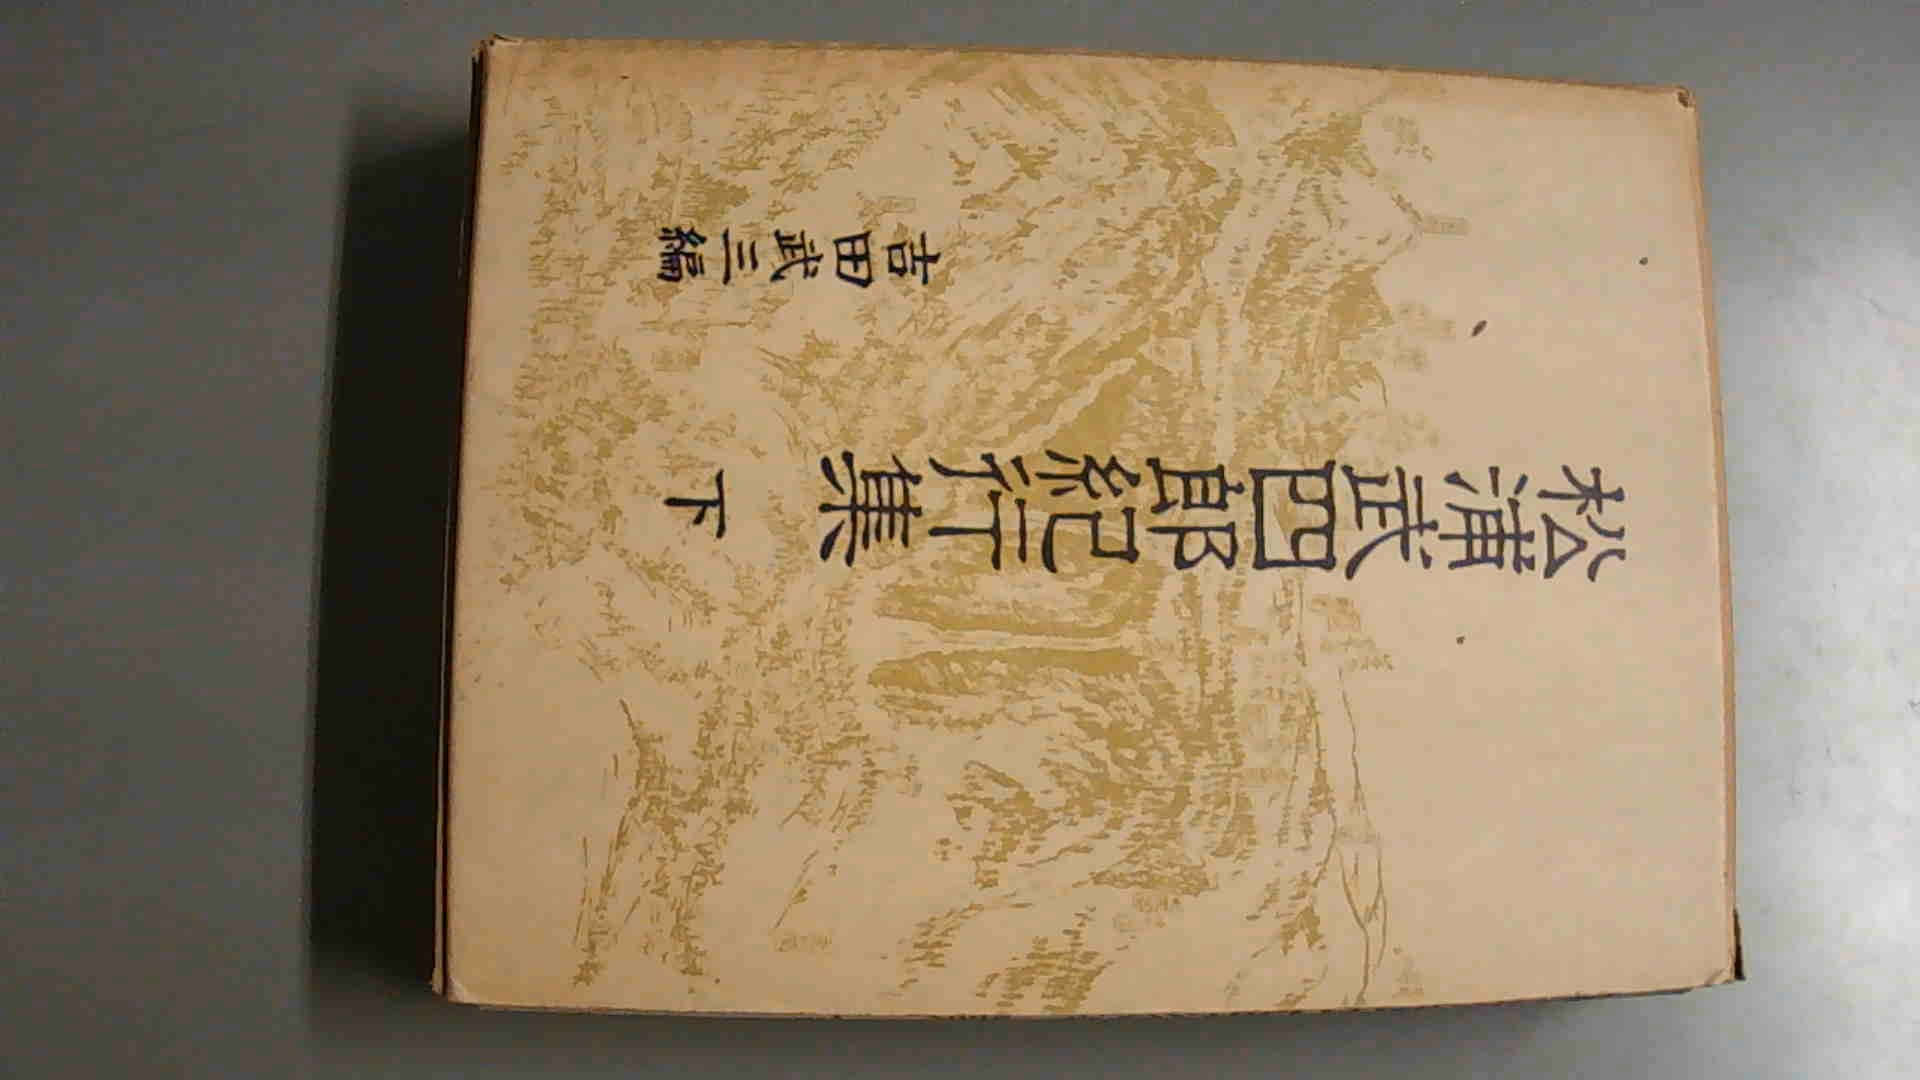 松浦武四郎紀行集
下
吉田武三編